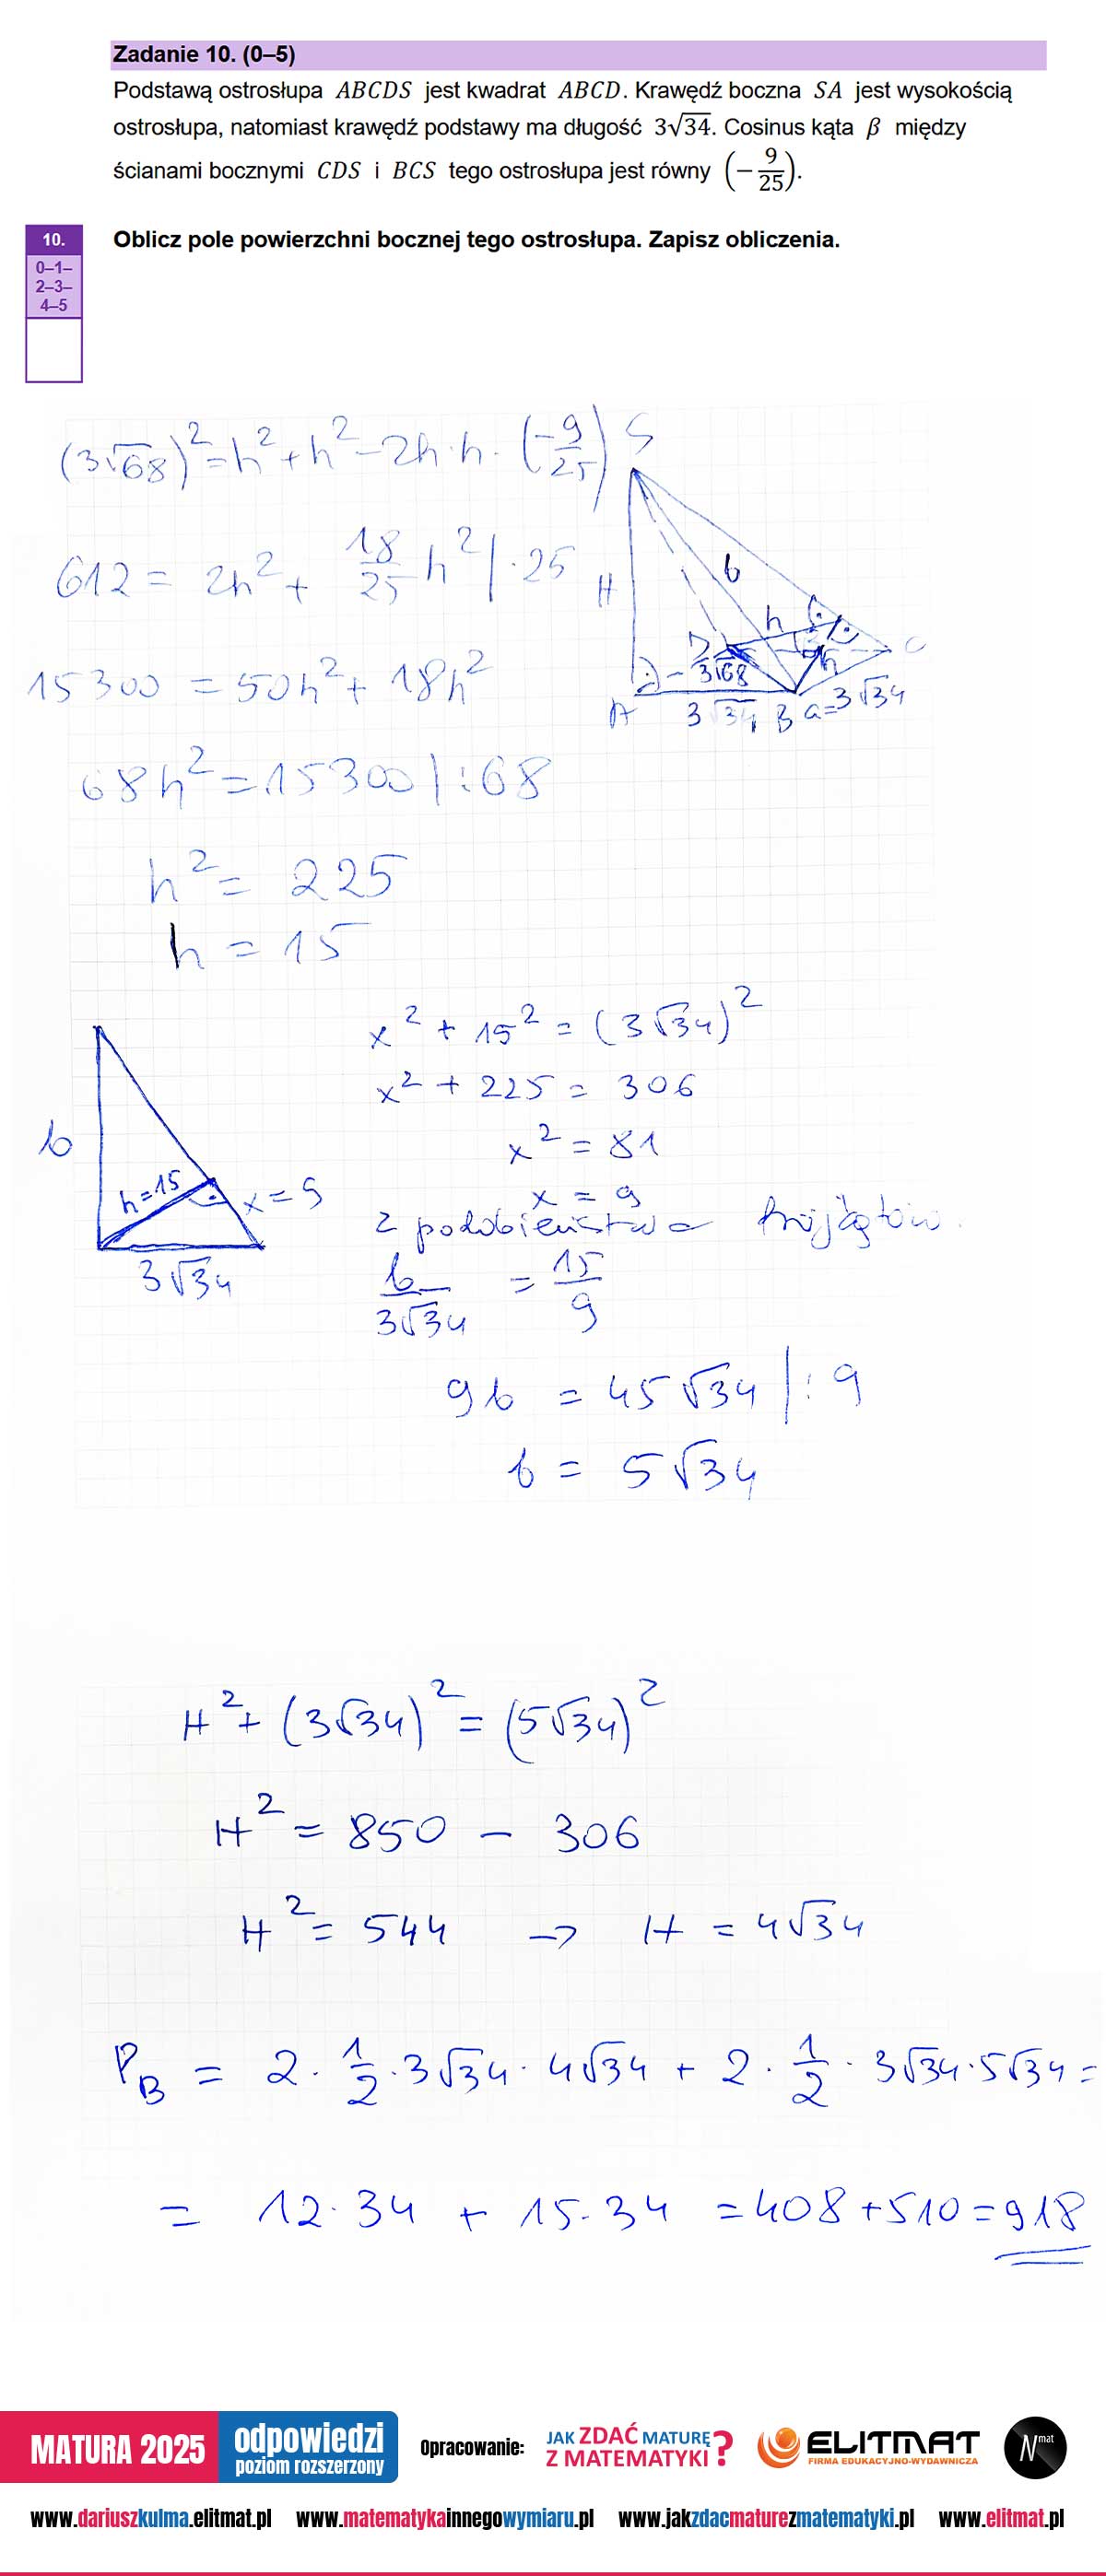 Zadanie 10. (0–5)
Podstawą ostrosłupa ABCDS jest kwadrat ABCD. Krawędź boczna SA jest wysokością
ostrosłupa, natomiast krawędź podstawy ma długość 3√34. Cosinus kąta β między
ścianami bocznymi CDS i BCS tego ostrosłupa jest równy (−9/25).
10.
0–1–
2–3–
4–5
Oblicz pole powierzchni bocznej tego ostrosłupa. Zapisz obliczenia.
(3√68)² = h² + h² − 2h·h·(−9/25)
612 = 2h² + 18/25 h² |·25
15300 = 50h² + 18h²
68h² = 15300 |:68
h² = 225
h = 15
S
b
H
h
D
C
3√68
h
A
3√34
B
a=3√34
x² + 15² = (3√34)²
x² + 225 = 306
x² = 81
x = 9
b
h=15
x=9
3√34
z podobieństwa trójkątów.
b/3√34 = 15/9
9b = 45√34 |:9
b = 5√34
H² + (3√34)² = (5√34)²
H² = 850 − 306
H² = 544 → H = 4√34
P_B = 2·1/2·3√34·4√34 + 2·1/2·3√34·5√34 =
= 12·34 + 15·34 = 408 + 510 = 918
MATURA 2025
odpowiedzi
poziom rozszerzony
Opracowanie:
JAK ZDAĆ MATURĘ
Z MATEMATYKI?
ELITMAT
FIRMA EDUKACYJNO-WYDAWNICZA
Nmat
www.dariuszkulma.elitmat.pl www.matematykainnegowymiaru.pl www.jakzdacmaturezmatematyki.pl www.elitmat.pl